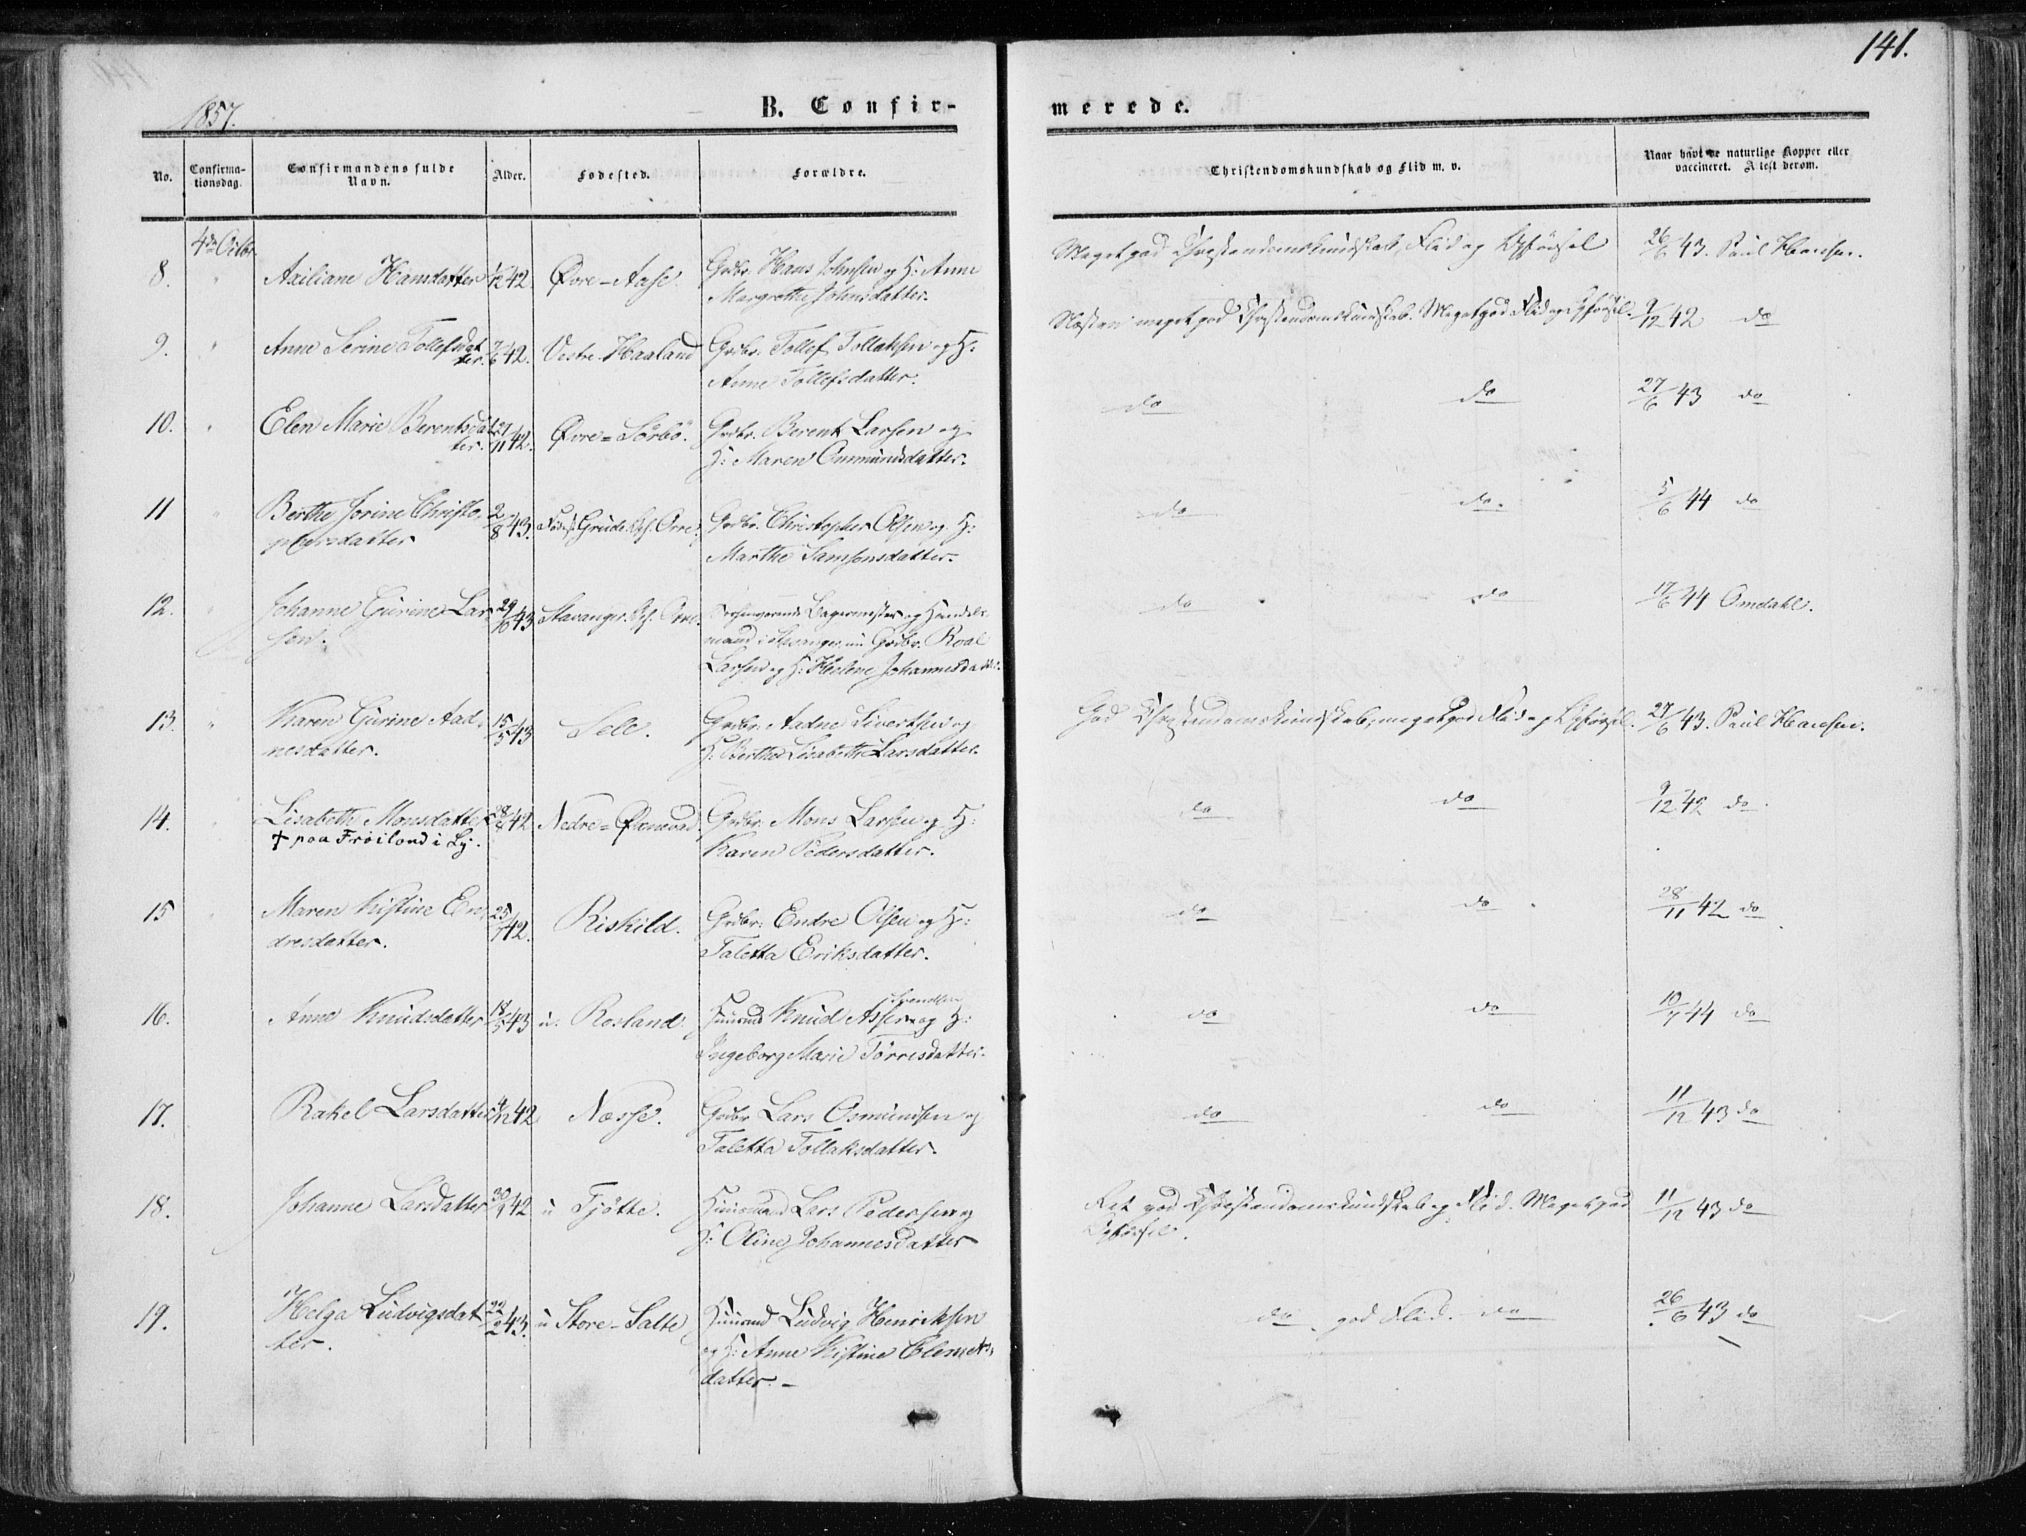 141.
1857.
B. Confir-
merede.
No.
Confirma-
tionsdag.
Confirmandens fulde
Navn.
Alder.
Fødested.
Forældre.
Christendomskundskab og Flid m. v.
Naar havt de naturlige Kopper eller
vaccineret. Attest derom.
4de Octbr.
8. " Axiliane Hansdatter 42. Øvre-Aase. Grdbr. Hans Johnsen og H: Anne
Margrethe Johnsdatter.
Meget god Christendomskundskab, Flid og Opførsel 26/6 43. Paul Hansen.
9. " Anne Serine Tollefsdat
ter. 42. Vestre-Haaland Grdbr. Tollef Tollaksen og H:
Anne Tollefsdatter.
Næsten meget god Christendomskundskab. Meget god Flid og Opførsel. 9/12 42 do
10. " Elen Marie Berentsdat
ter. 27/11 42. Øvre=Sörbö. Grdbr. Berent Larsen og
H: Maren Ommundsdatter.
do do 27/6 43 do
11 " Berthe Jorine Christo-
phersdatter 2/8 43. Grude Orre. Grdbr. Christopher Olsen og H:
Marthe Samsonsdatter.
do do. 5/6 44 do
12. " Johanne Gurine Lar
sen. 29/10 43 Stavanger. Bagermester og Handels
mand i Stavanger, nu Grdbr. Roal
Larsen og H: Helene Johannesdatter.
do do 17/6 44 Omdahl.
13. " Karen Gurine Aad-
nesdatter. 15/5 43 Sele. Grdbr. Aadne Sivertsen og
H: Berthe Lisabeth Larsdatter.
God Christendomskundskab, meget god Flid og Opførsel. 27/6 43. Paul Hansen.
14. " Lisabeth Monsdatter 42 Nedre=Øxnevad. Grdbr. Mons Larsen og H:
† paa Frøiland i Ly.
Karen Pedersdatter.
do do 9/12 42 do.
15 " Maren Kistine En-
dresdatter. 25/7 42. Riskild. Grdbr. Endre Olsen og H:
Taletta Eriksdatter.
do do 28/11 42 do
16. Anne Knudsdatter 18/5 43 u. Rosland. Huusmd Knud Assersen og H:
Ingeborg Marie Törresdatter.
do do 10/7 44 do
17. Rakel Larsdatter 4/12 42 Næsse. Grdbr Lars Osmundsen og
Taletta Tollaksdatter.
do do 11/12 43 do
18. Johanne Larsdatter 30/9 42 u Tjötte. Huusmand Lars Pedersen og
H: Oline Johannesdatter
Ret god Christendomskundskab og Flid. Meget god
Opførsel. 11/12 43 do
19. Helga Ludvigsdat
ter. 22/2 43. u Store-Salte Huusmd Ludvig Henriksen
og H: Anne Kistine Clements
datter. –
do god Flid. do 26/6 43 do